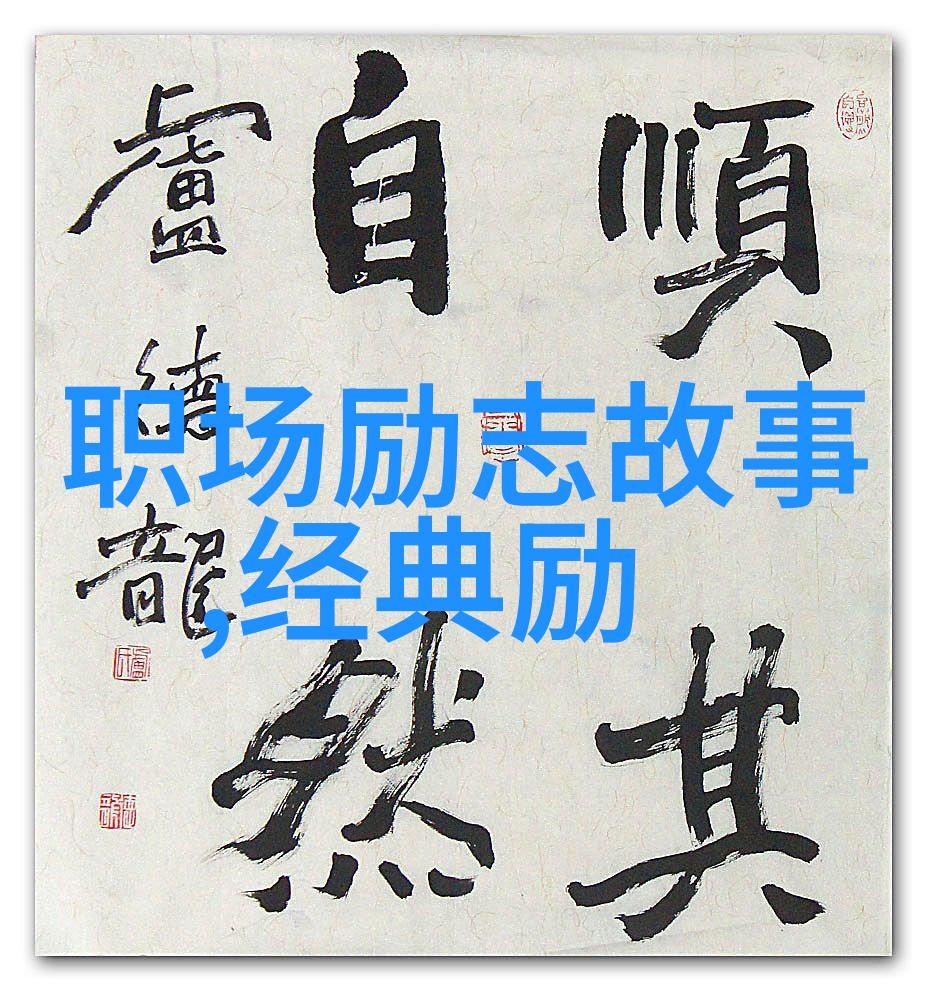 順其
自然
盧德龍
职场励志故事
,经典励